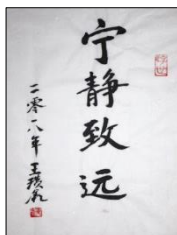 宁静致远
二零一八年